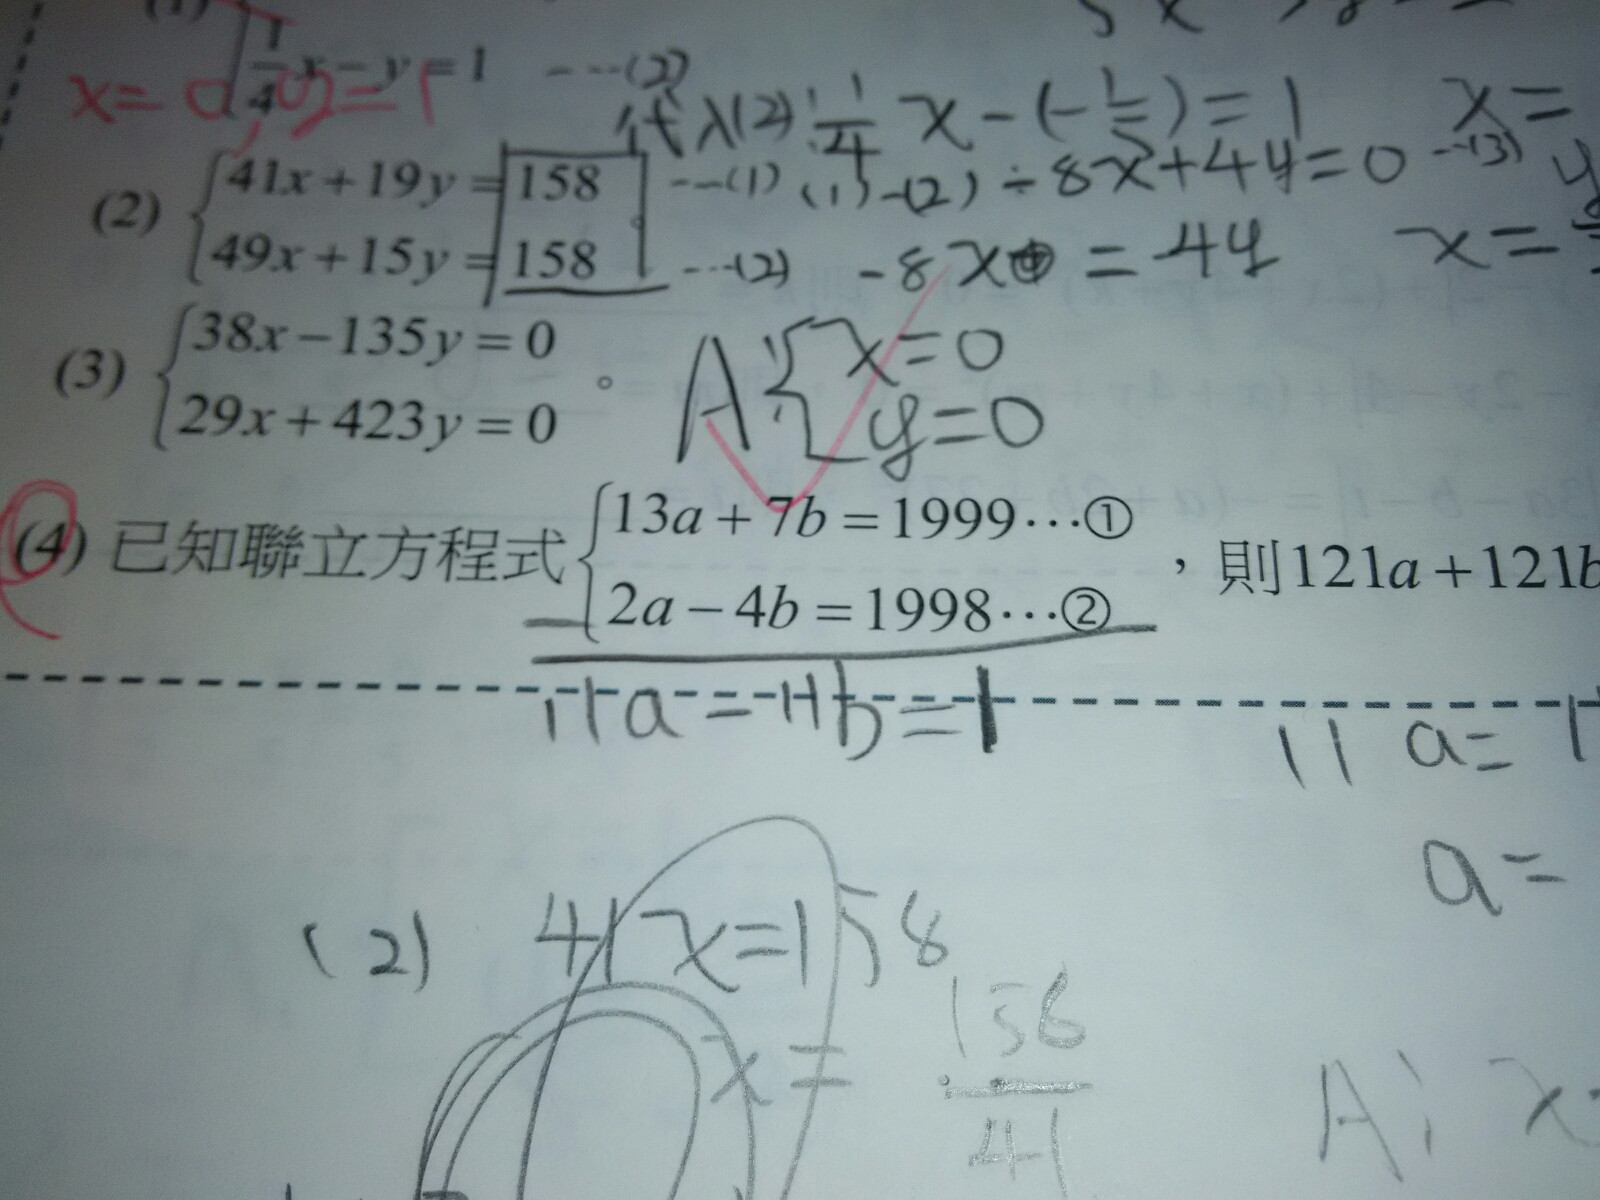 (1) 1/4 x - y = 1 ---(2)
x=0, y=1
代入(2) 1/4 x - (- ) = 1 x=
(2) { 41x + 19y = 158 ---(1) (1)-(2) ÷ 8x + 4y = 0 --(3)
49x + 15y = 158 。 ---(2) -8x = 4y x=
(3) { 38x − 135y = 0
29x + 423y = 0 。 A:{ x=0
y=0
(4) 已知聯立方程式 { 13a + 7b = 1999⋯①
2a − 4b = 1998⋯② ，則121a +121b
11a = 11b = 1
11 a = 1
a =
(2) 41x=158
x = 158/41
A: x